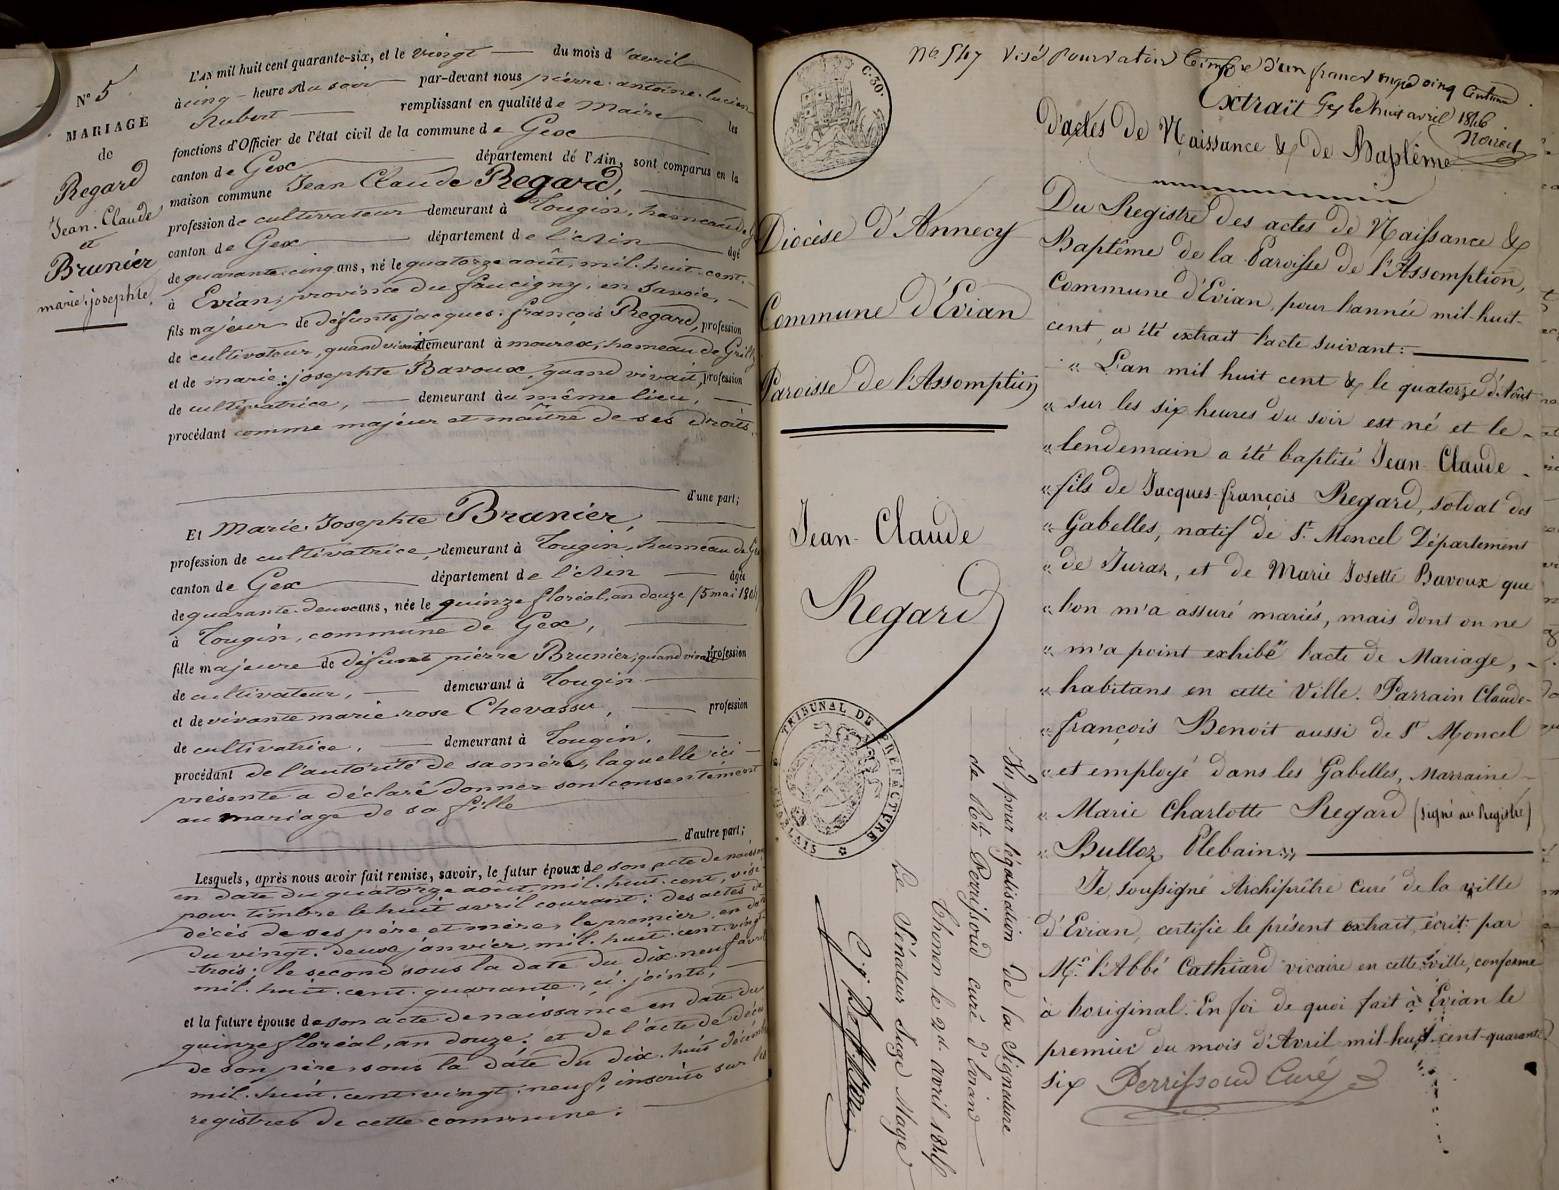 N° 5
MARIAGE
de
Regard
Jean-Claude
et
Brunier
marie-josephte.
L'AN mil huit cent quarante-six, et le vingt du mois d'avril
à cinq heures du soir par-devant nous pierre-antoine-lucien
Hubert remplissant en qualité de maire les
fonctions d'Officier de l'état civil de la commune de Gex
canton de Gex département de l'Ain, sont comparus en la
maison commune Jean Claude Regard,
profession de cultivateur demeurant à Tougin, hameau de
canton de Gex département de l'Ain âgé
de quarante-cinq ans, né le quatorze août, mil-huit-cent-
à Evian, province du faucigny, en Savoie,
fils majeur de défunts jacques-françois Regard, profession
de cultivateur, quand vivait demeurant à mourex, hameau de Grilly
et de marie-josephte Bavoux, quand vivait, profession
de cultivatrice, demeurant au même lieu,
procédant comme majeur et maître de ses droits.
d'une part;
Et Marie-Josephte Brunier,
profession de cultivatrice, demeurant à Tougin, hameau de
canton de Gex département de l'Ain âgée
de quarante-deux ans, née le quinze floréal, an douze (5 mai 1804)
à Tougin, commune de Gex,
fille majeure de défunt pierre Brunier, quand vivait profession
de cultivateur, demeurant à Tougin
et de vivante marie rose Chevassu, profession
de cultivatrice, demeurant à Tougin.
procédant de l'autorité de sa mère, laquelle ici
présente a déclaré donner son consentement
au mariage de sa fille
d'autre part;
Lesquels, après nous avoir fait remise, savoir, le futur époux de son acte de naissance
en date du quatorze août, mil-huit-cent, visé
pour timbre le huit avril courant; des actes de
décès de ses père et mère, le premier en date
du vingt-deux janvier, mil-huit-cent-vingt-
trois; le second sous la date du dix-neuf avril
mil-huit-cent-quarante, ci-joints,
et la future épouse de son acte de naissance en date du
quinze floréal, an douze; et de l'acte de décès
de son père, sous la date du dix-huit décembre
mil-huit-cent-vingt-neuf, inscrits sur les
registres de cette commune;
C. 30
N° 547 Visé pour valoir timbre d'un franc vingt cinq centimes
Gex le huit avril 1846
Noirot
Extrait
d'actes de Naissance & de Baptême
Diocèse d'Annecy
Commune d'Evian
Paroisse de l'Assomption
Jean-Claude
Regard
TRIBUNAL DE PREFECTURE
Du Registre des actes de Naissance &
Baptême de la Paroisse de l'Assomption,
Commune d'Evian, pour l'année mil-huit-
cent, a été extrait l'acte suivant:
" L'an mil huit cent & le quatorze d'Août
" sur les six heures du soir est né et le
" lendemain a été baptisé Jean-Claude
" fils de Jacques-françois Regard, soldat des
" Gabelles, natif de St. Moncel Département
" de Juras, et de Marie Josette Bavoux que
" l'on m'a assuré mariés, mais dont on ne
" m'a point exhibé l'acte de Mariage,
" habitans en cette Ville. Parrain Claude-
" françois Benoit aussi de St. Moncel
" et employé dans les Gabelles, Marraine
" Marie Charlotte Regard (signé au Registre)
" Bulloz Plebain
Je, soussigné Archiprêtre curé de la ville
d'Evian, certifie le présent extrait, écrit par
Mr. l'Abbé Cathiard vicaire en cette ville, conforme
à l'original. En foi de quoi fait à Evian le
premier du mois d'Avril mil-huit-cent-quarante
six Perrissoud Curé
Vu pour légalisation de la Signature
de Rd. Perrissoud curé d'Evian
Thonon le 2d. avril 1846
Le Sénateur Juge Mage